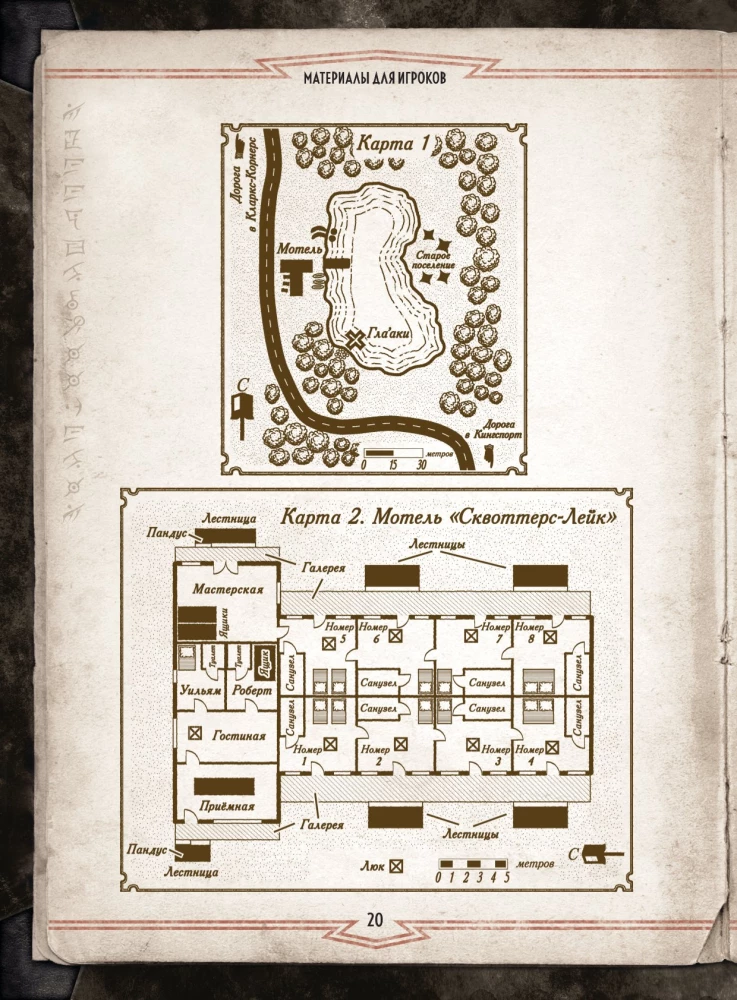 МАТЕРИАЛЫ ДЛЯ ИГРОКОВ
Карта 1
Дорога
в Кларкс-Корнерс
Мотель
Старое
поселение
Гла'аки
С
Дорога
в Кингспорт
метров
0 15 30
Карта 2. Мотель «Сквоттерс-Лейк»
Лестница
Пандус
Лестницы
Галерея
Мастерская
Ящики
Номер
5
Номер
6
Номер
7
Номер
8
Туалет
Туалет
Ящик
Уильям
Роберт
Санузел
Санузел
Санузел
Санузел
Санузел
Санузел
Санузел
Санузел
Гостиная
Номер
1
Номер
2
Номер
3
Номер
4
Приёмная
Галерея
Лестницы
Пандус
Лестница
Люк
метров
0 1 2 3 4 5
С
20